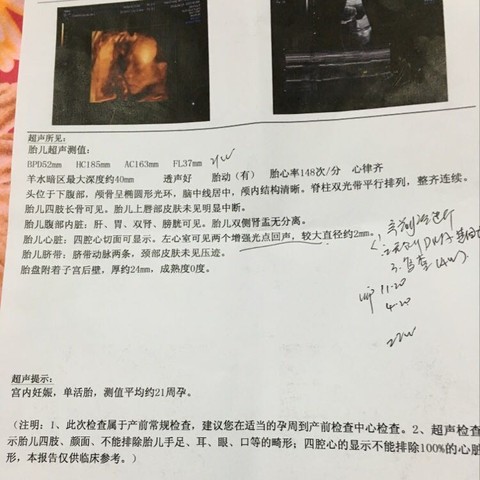 超声所见：
胎儿超声测值：
BPD52mm HC185mm AC163mm FL37mm 21W
羊水暗区最大深度约40mm 透声好 胎动（有） 胎心率148次/分 心律齐
头位于下腹部，颅骨呈椭圆形光环，脑中线居中，颅内结构清晰。脊柱双光带平行排列，整齐连续。
胎儿四肢长骨可见。胎儿上唇部皮肤未见明显中断。
胎儿腹部内脏：肝、胃、双肾、膀胱可见。胎儿双侧肾盂无分离。
胎儿心脏：四腔心切面可显示。左心室可见两个增强光点回声，较大直径约2mm。
胎儿脐带：脐带动脉两条，颈部皮肤未见压迹。
胎盘附着子宫后壁，厚约24mm，成熟度0度。
11.20
4.20
22W
超声提示：
宫内妊娠，单活胎，测值平均约21周孕。
（注明：1、此次检查属于产前常规检查，建议您在适当的孕周到产前检查中心检查。2、超声检查
示胎儿四肢、颜面、不能排除胎儿手足、耳、眼、口等的畸形；四腔心的显示不能排除100%的心脏
形，本报告仅供临床参考。）